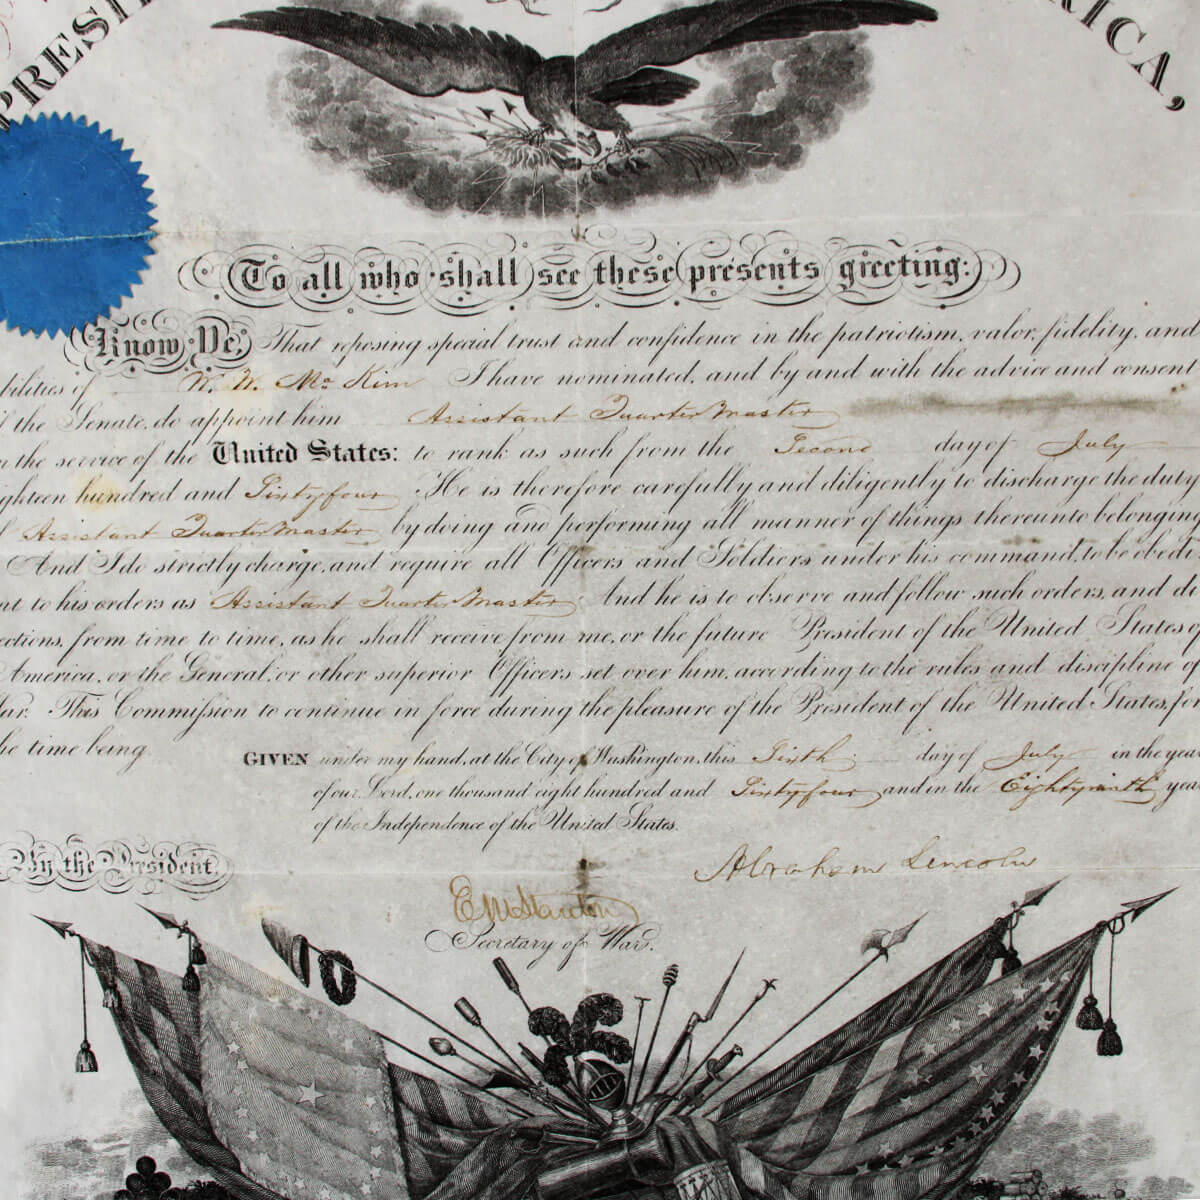 PRESI
RICA,
To all who shall see these presents greeting:
Know Ye, That reposing special trust and confidence in the patriotism, valor, fidelity, and
bilities of W. W. Mc Kim I have nominated, and by and with the advice and consent
f the Senate, do appoint him Assistant Quarter Master
n the service of the United States: to rank as such from the Second day of July
ighteen hundred and Sixty four He is therefore carefully and diligently to discharge the duty
Assistant Quarter Master by doing and performing all manner of things thereunto belonging
And I do strictly charge, and require all Officers and Soldiers under his command, to be obedi
nt to his orders as Assistant Quarter Master And he is to observe and follow such orders, and di
ections, from time to time, as he shall receive from me, or the future President of the United States of
America, or the General, or other superior Officers set over him, according to the rules and discipline of
War. This Commission to continue in force during the pleasure of the President of the United States, for
he time being.
GIVEN under my hand, at the City of Washington, this Sixth day of July in the year
of our Lord, one thousand eight hundred and Sixty four and in the Eighty ninth year
of the Independence of the United States.
By the President,
Abraham Lincoln
E M Stanton
Secretary of War.